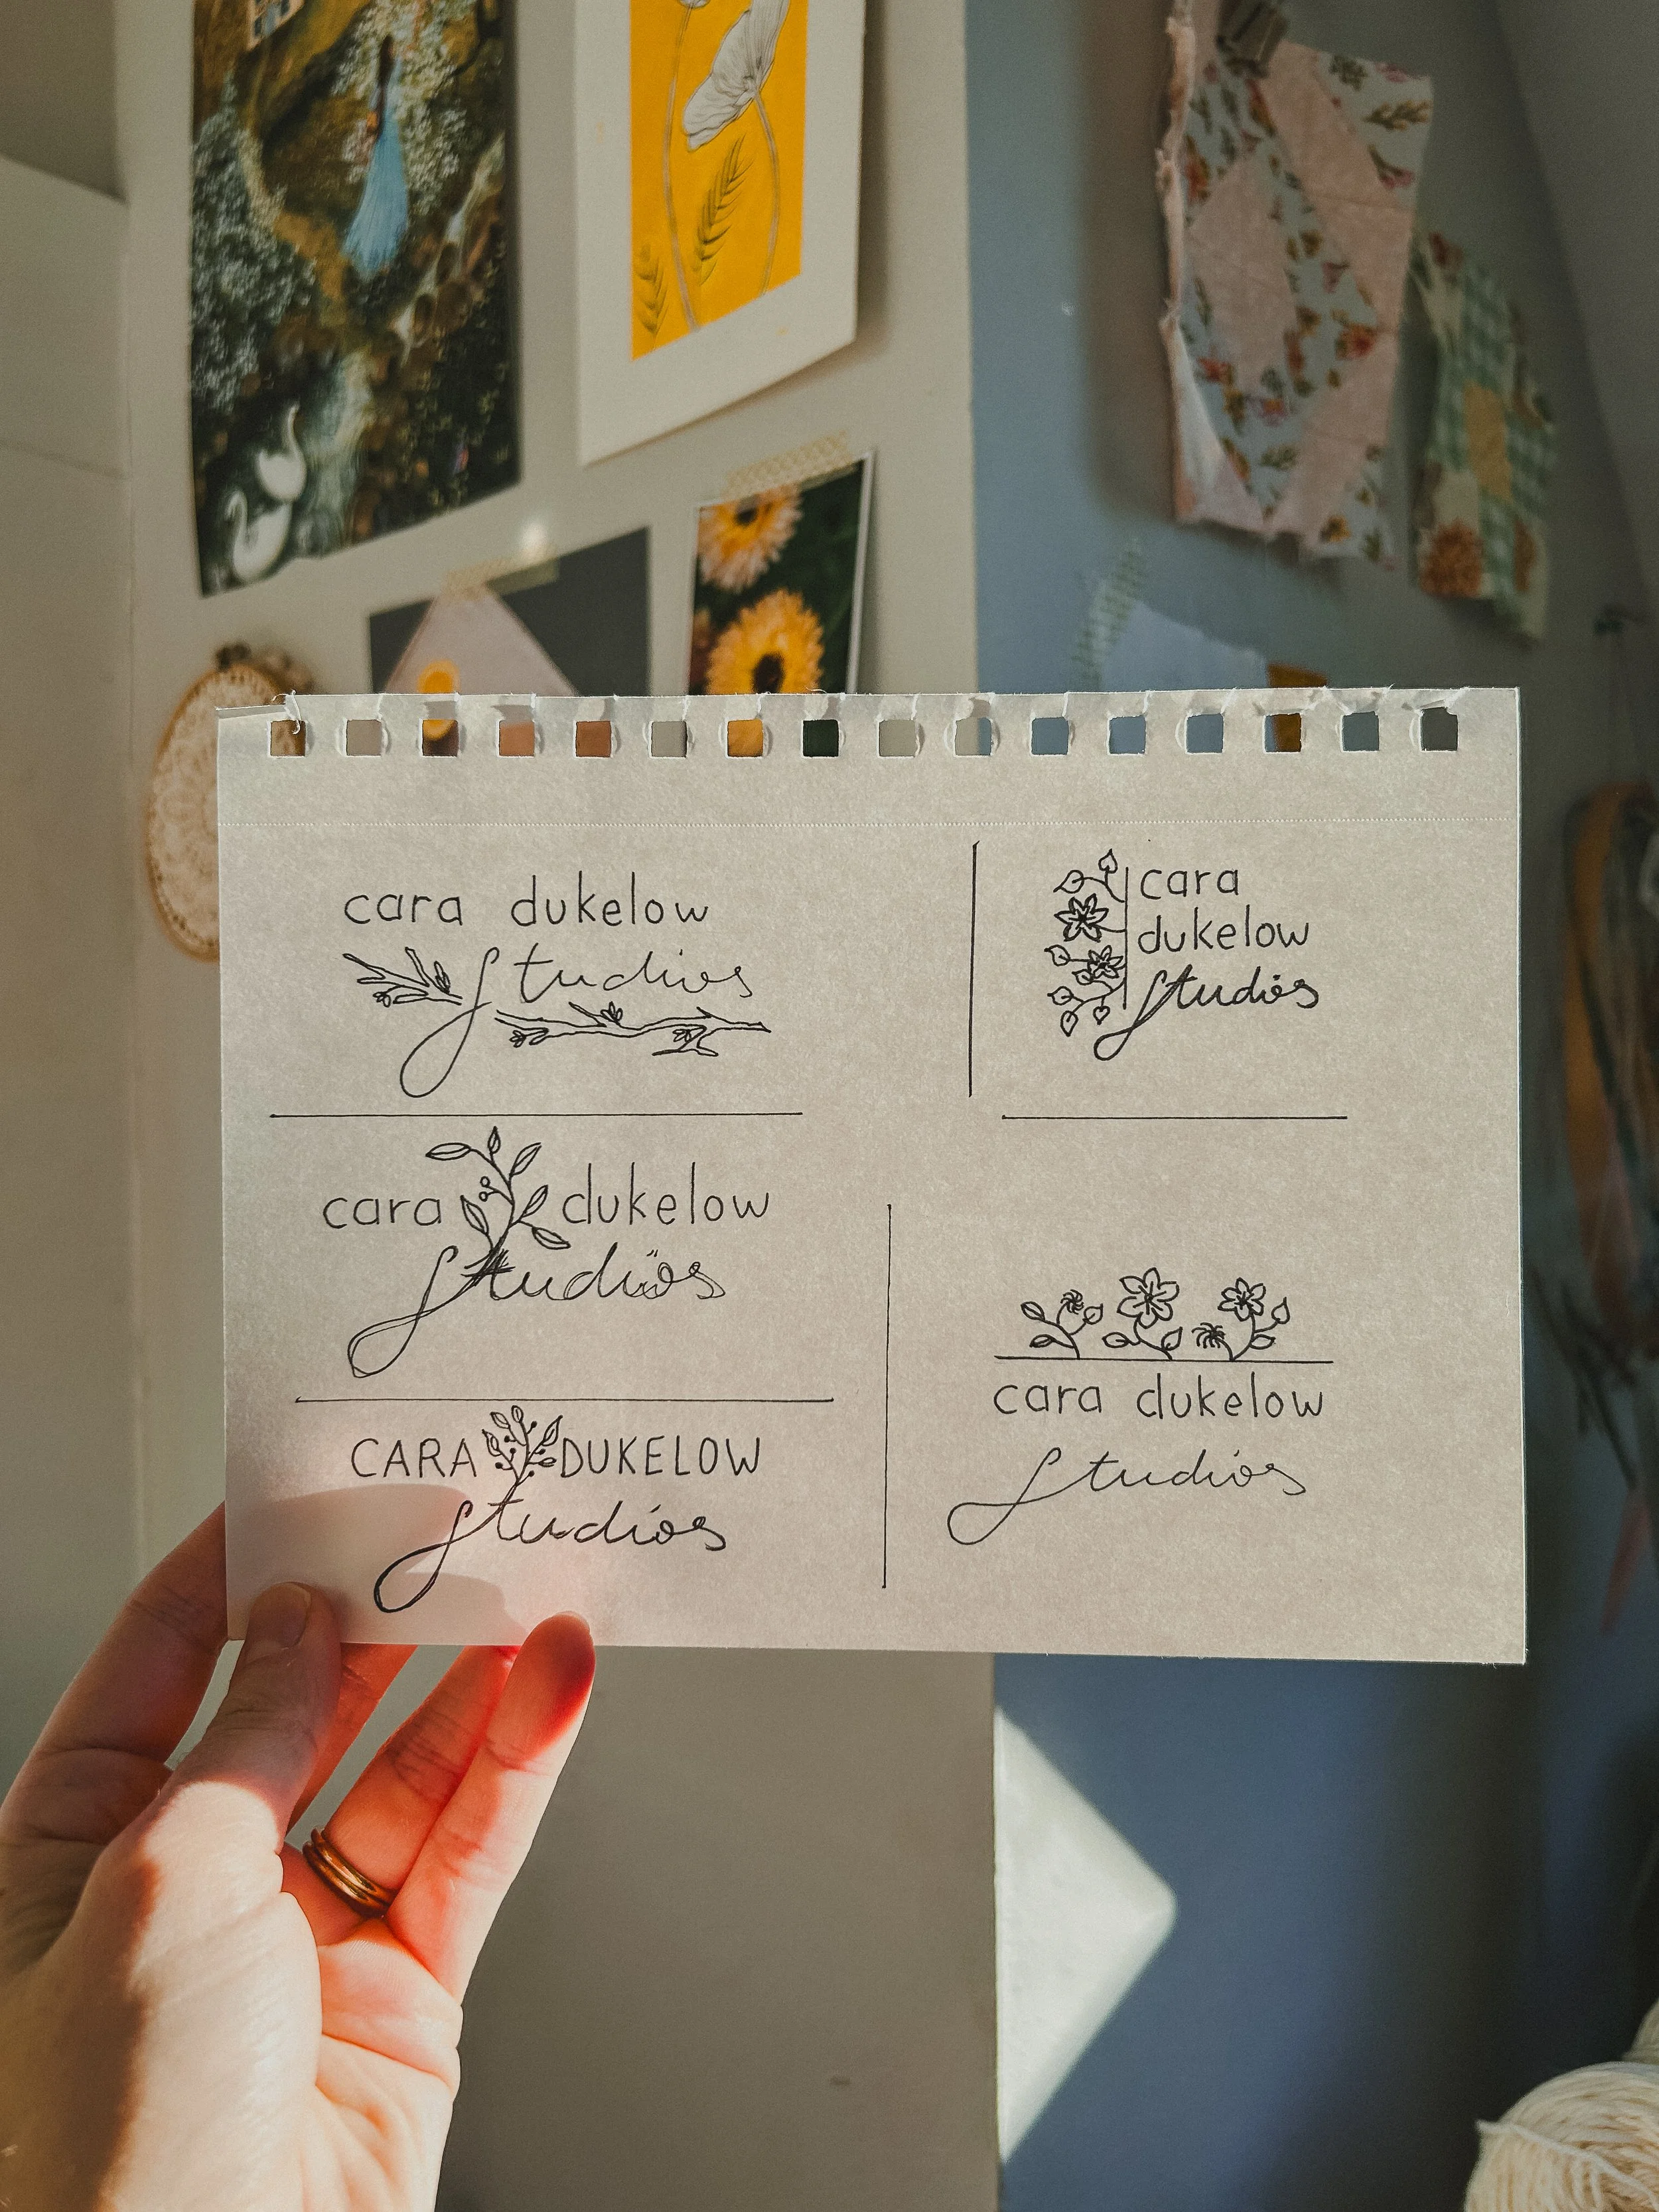 cara dukelow
studios
cara
dukelow
studios
cara dukelow
studios
cara dukelow
studios
CARA DUKELOW
studios